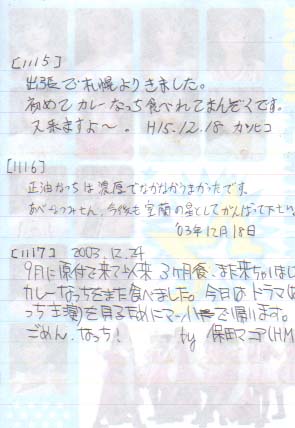 [1115]
出張で札幌よりきました。
初めてカレーなっち食べれてまんぞくです。
又来ますよ〜。 H15.12.18 カツヒコ
[1116]
正油なっちは濃厚でなかなかうまかったです。
あべなつみさん、今後も室蘭の星としてがんばって下さい
'03年12月18日
[1117] 2003.12.24
9月に原付で来て以来3ケ月食、また来ちゃいまし
カレーなっちをまた食べました。今日はドラマ(な
っち主演)を見るために で帰ります。
ごめん、なっち! by 保田マニア(HM